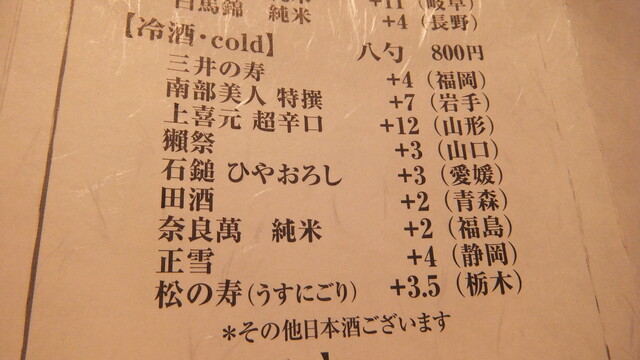 白馬錦 純米 +4（長野）
【冷酒・cold】 八勺 800円
三井の寿 +4（福岡）
南部美人 特撰 +7（岩手）
上喜元 超辛口 +12（山形）
獺祭 +3（山口）
石鎚 ひやおろし +3（愛媛）
田酒 +2（青森）
奈良萬 純米 +2（福島）
正雪 +4（静岡）
松の寿（うすにごり） +3.5（栃木）
＊その他日本酒ございます